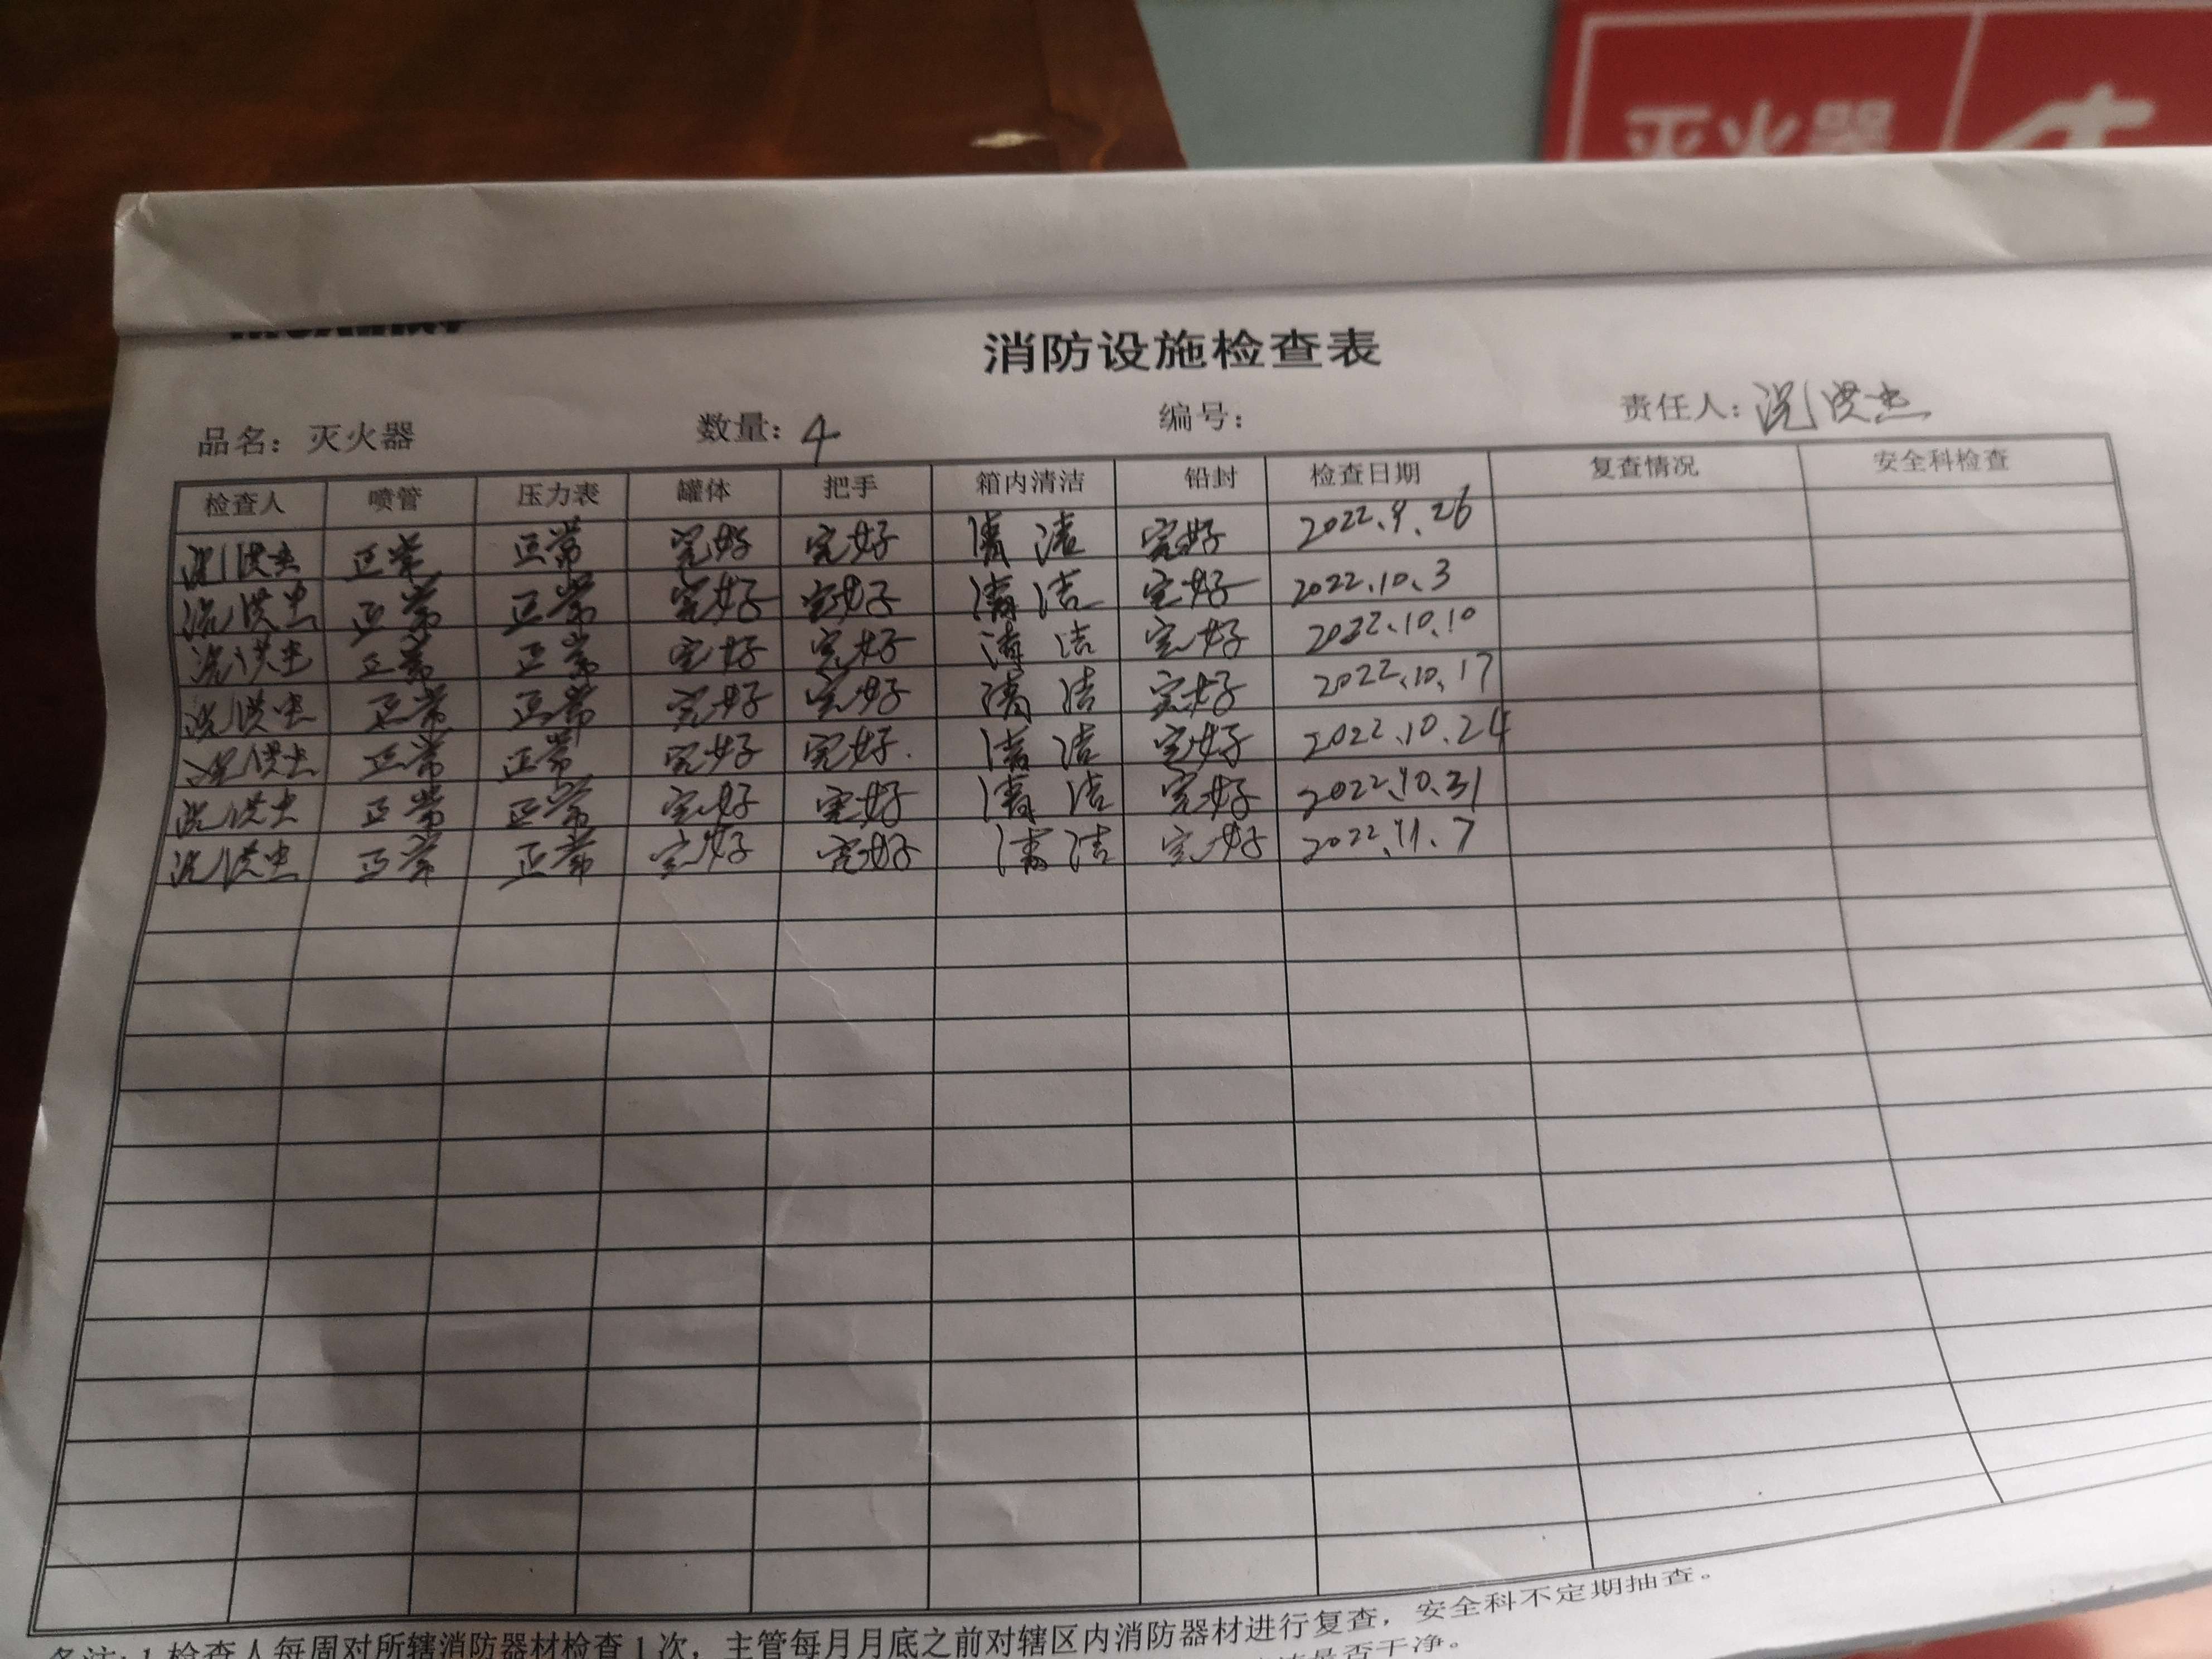 灭火器
消防设施检查表
品名：灭火器 数量：4 编号： 责任人：洪杰
检查人 喷管 压力表 罐体 把手 箱内清洁 铅封 检查日期 复查情况 安全科检查
正常 正常 完好 完好 清洁 完好 2022.9.26
正常 正常 完好 完好 清洁 完好 2022.10.3
正常 正常 完好 完好 清洁 完好 2022.10.10
正常 正常 完好 完好 清洁 完好 2022.10.17
正常 正常 完好 完好. 清洁 完好 2022.10.24
正常 正常 完好 完好 清洁 完好 2022.10.31
正常 正常 完好 完好 清洁 完好 2022.11.7
备注：1检查人每周对所辖消防器材检查1次，主管每月月底之前对辖区内消防器材进行复查，安全科不定期抽查。
是否干净。